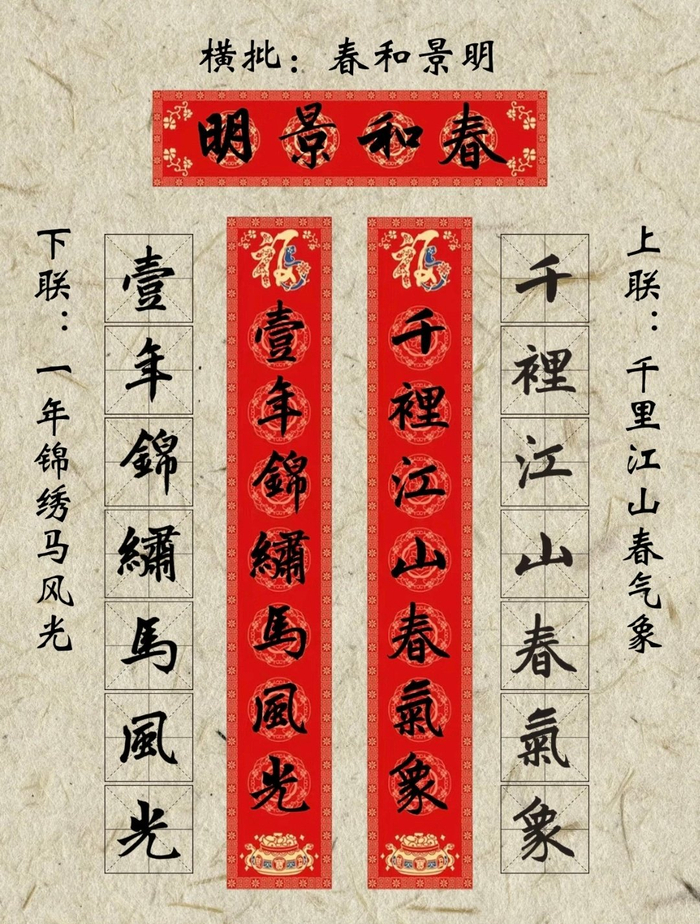 横批：春和景明
春和景明
上联：千里江山春气象
千裡江山春氣象
千裡江山春氣象
壹年錦繡馬風光
壹年錦繡馬風光
下联：一年锦绣马风光